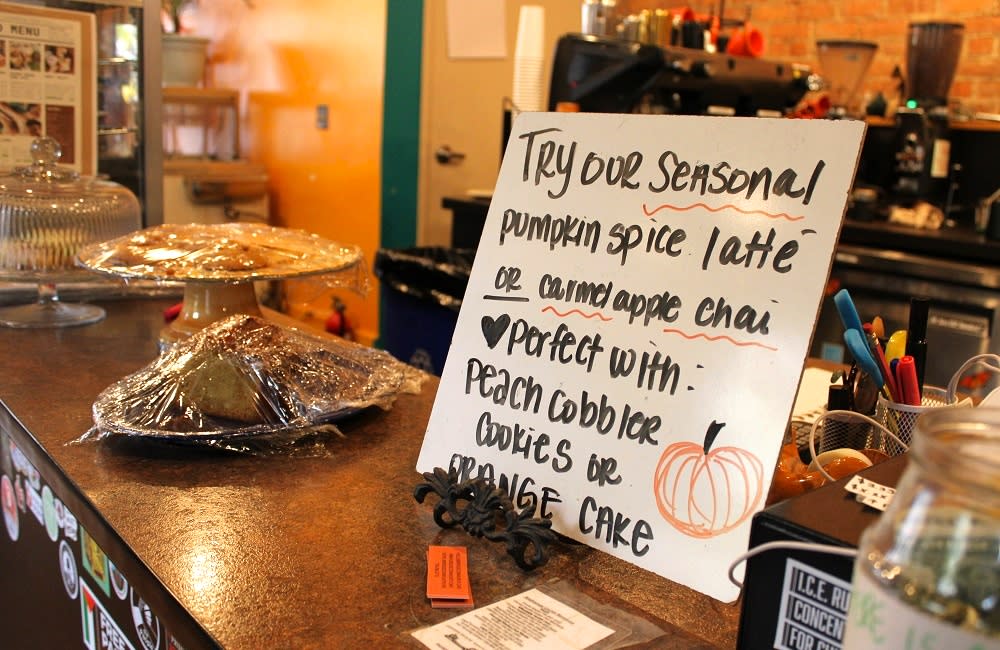 MENU
TRY OUR SEASONAL
pumpkin spice latté
OR carmel apple chai
♥ Perfect with:
Peach Cobbler
Cookies OR
ORANGE CAKE
I.C.E.
CONCEN
FOR
FREE